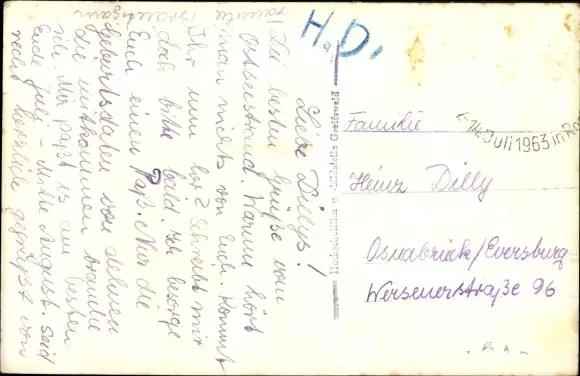 H.D.
Liebe Dillys!
Die besten Grüße vom
Ostseestrand. Warum hört
man nichts von Euch. Kommt
Ihr nun her? Schreibt mir
doch bitte bald. Ich besorge
Euch einen Paß. Nur die
Geburtsdaten von denen
die mitkommen brauche
ich. Mir paßt es am besten
Ende Juli - Mitte August. Seid
recht herzlich gegrüßt von
Familie
Heinz Dilly
Osnabrück/Eversburg
Wersenerstraße 96
- 14. Juli 1963 in